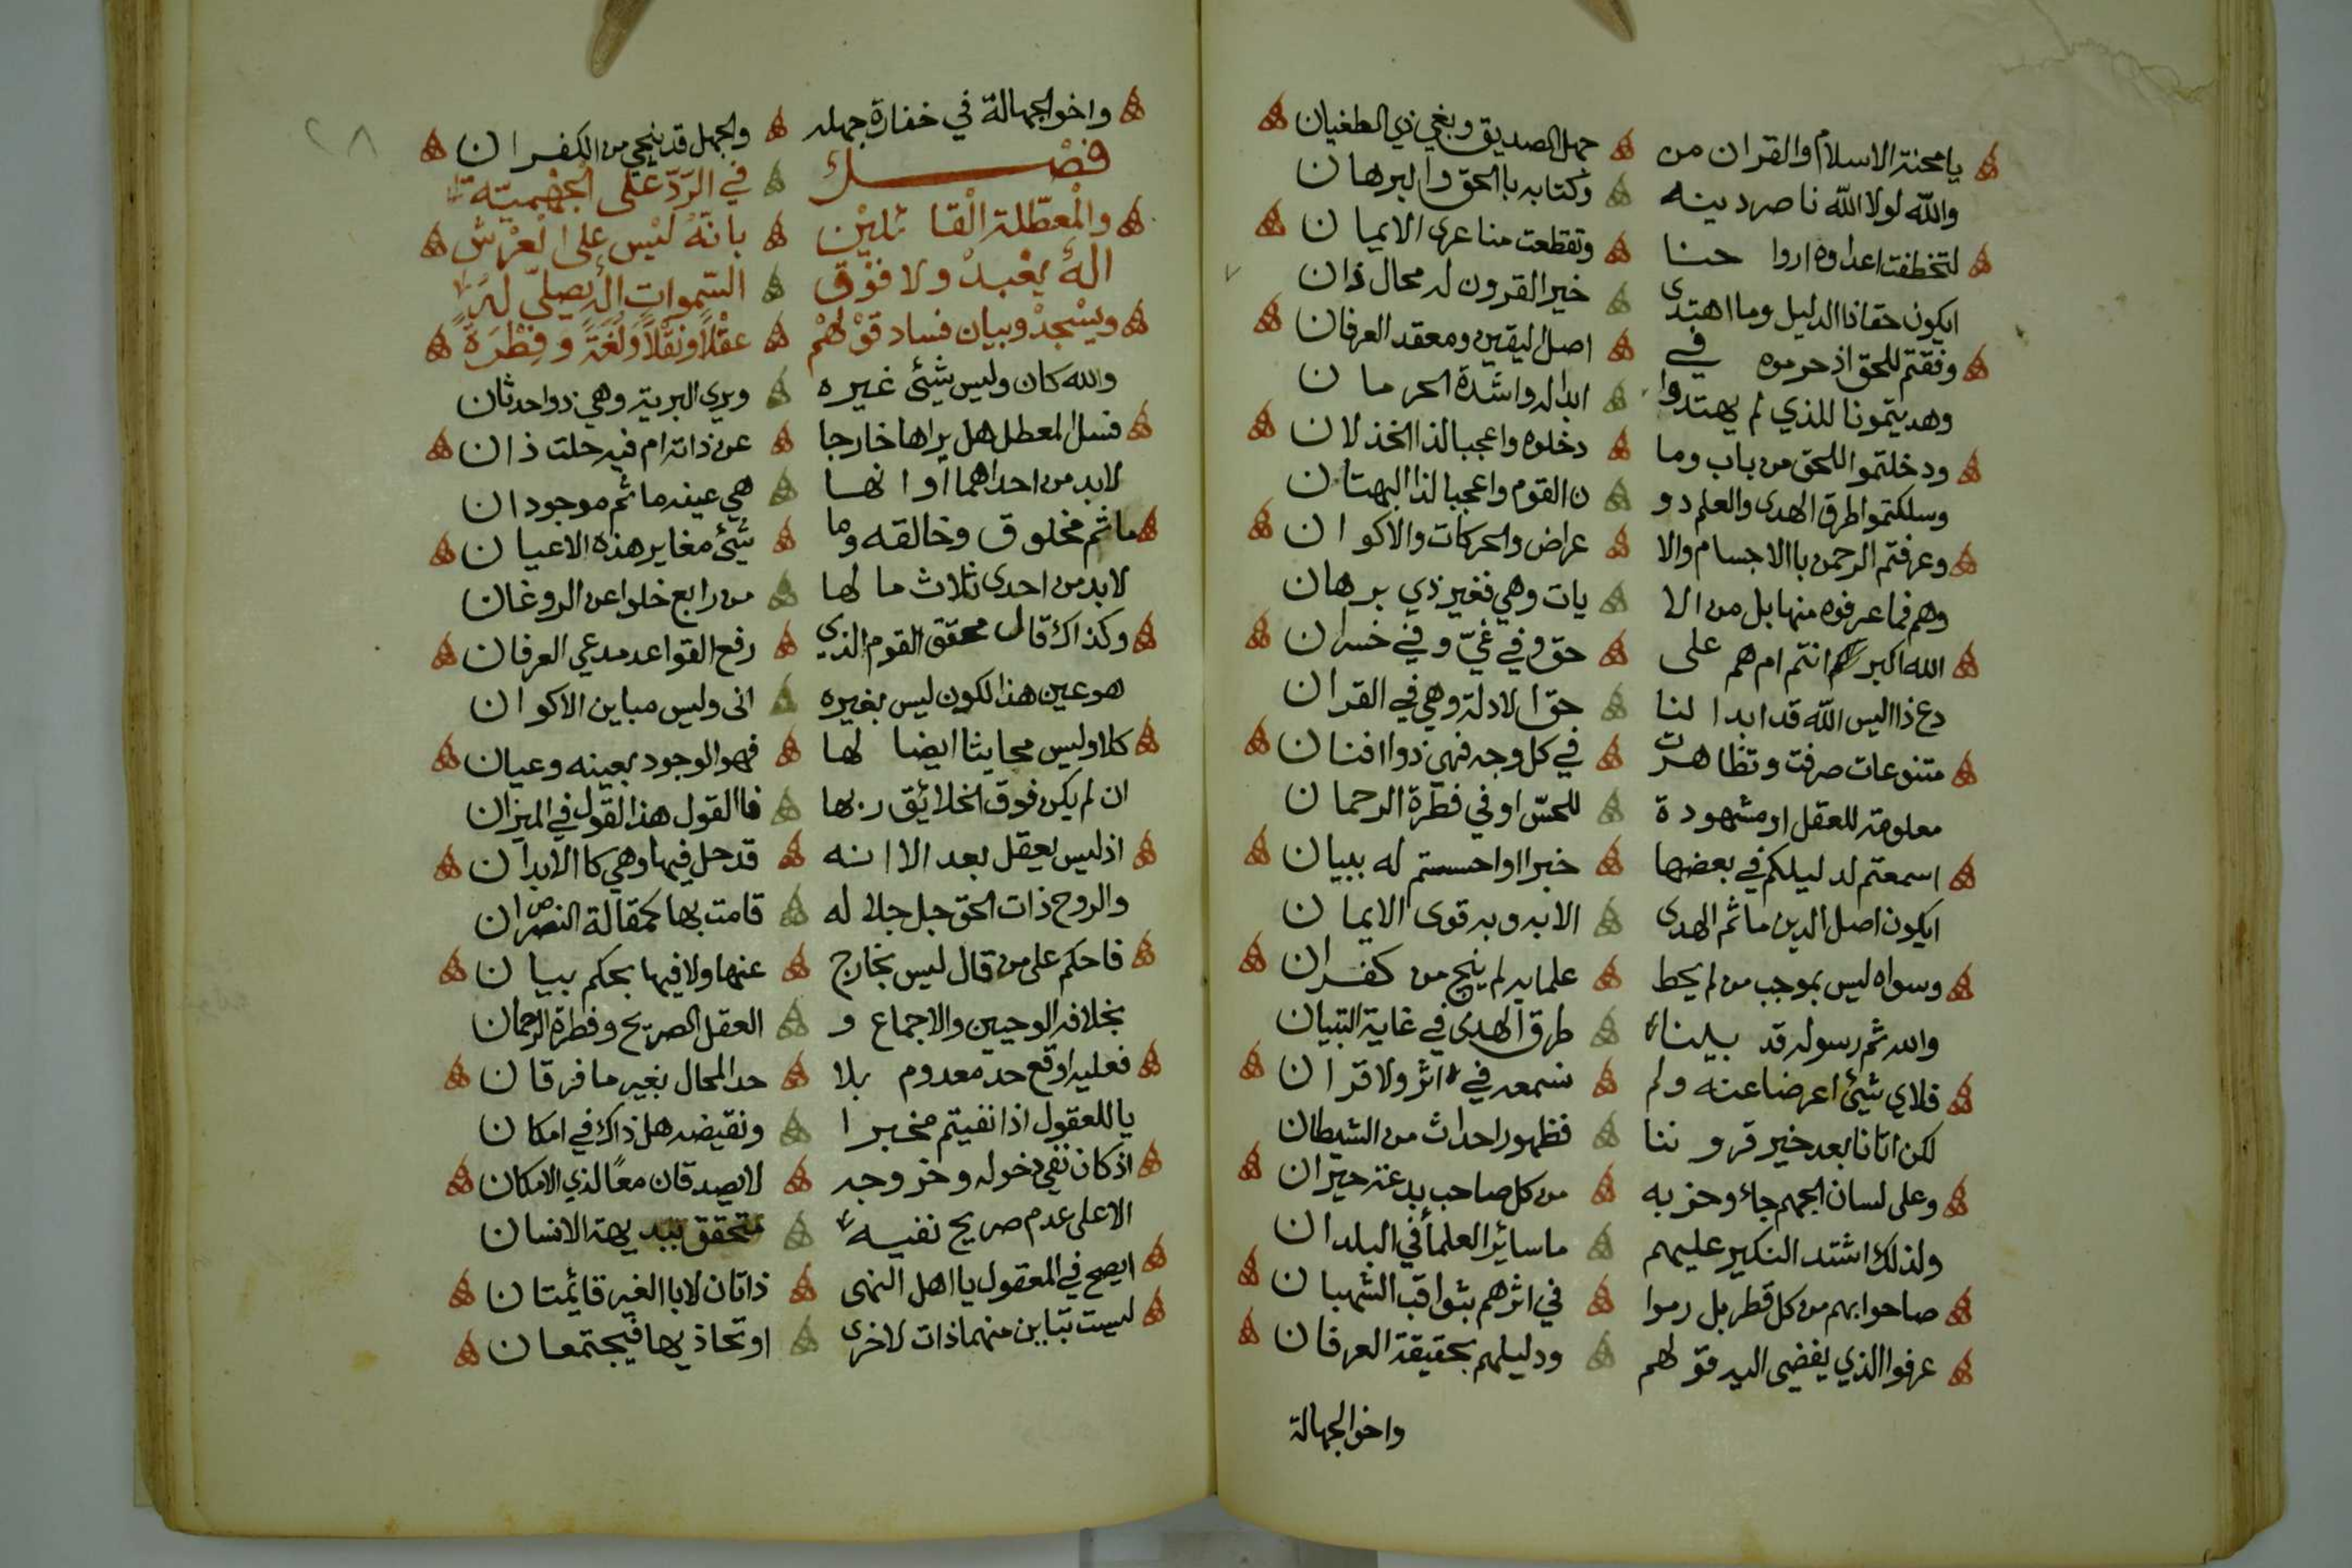 يا محنة الاسلام والقران من جهل الصديق وبغي ذي الطغيان
والله لولا الله ناصر دينه وكتابه باالحق والبرهان
لتخطفت اعداوه ارواحنا وتقطعت منا عرى الايمان
ايكون حقا ذا الدليل وما اهتدى خير القرون له محال ذان
وفقتم للحق اذ حرموه في اصل اليقين ومعقد العرفان
وهديتمونا للذي لم يهتدوا ابدا له واشدة الحرمان
ودخلتموا للحق من باب وما دخلوه واعجبا لذا الخذلان
وسلكتموا طرق الهدى والعلم دو ن القوم واعجبا لذا البهتان
وعرفتم الرحمن باالاجسام والا عراض والحركات والاكوان
وهم فما عرفوه منها بل من الا يات وهي فغير ذي برهان
الله اكبر انتم ام هم على حق وفي غيّ وفي خسران
دع ذا اليس الله قد ابدا لنا حق الادلة وهي في القران
متنوعات صرفت وتظاهرت في كل وجه فهي ذوا افنان
معلومة للعقل او مشهودة للحسّ او في فطرة الرحمان
اسمعتم لدليلكم في بعضها خبرا او احسستم له ببيان
ايكون اصل الدين ما تم الهدى الا به وبه قوى الايمان
وسواه ليس بموجب من لم يحط علما به لم ينج من كفران
والله ثم رسوله قد بينا طرق الهدى في غاية التبيان
فلاي شيئ اعرضا عنه ولم نسمعه في اثر ولا قران
لكن اتانا بعد خير قروننا فظهور احداث من الشيطان
وعلى لسان الجهم جاء وحزبه من كل صاحب بدعة حيران
ولذلك اشتد النكير عليهم ما سائر العلماء في البلدان
صاحوا بهم من كل قطر بل رموا في اثرهم بثواقب الشهبان
عرفوا الذي يفضي اليه قولهم ودليلهم بحقيقة العرفان
واخو الجهالة
٢٨
واخو الجهالة في خفارة جهله والجهل قد ينجي من الكفران
فصْــل في الرّدّ على الجهْميّة
والمعطّلة القائليْن بانّه ليْس على العرْش
اله يعْبدْ ولا فوْق السّموات اله يصلّي له
ويسْجدْ وبيان فساد قوْلهمْ عقْلاً ونقْلاً ولغَةً وفِطْرَةً
والله كان وليس شيئ غيره وبرى البرية وهي ذوا حدثان
فسل المعطل هل يراها خارجا عن ذاته ام فيه حلت ذان
لابد من احداهما او انها هي عينه ما ثم موجودان
ما ثم مخلوق وخالقه وما شيئ مغاير هذه الاعيان
لابد من احدى ثلاث ما لها من رابع خلوا عن الروغان
وكذاك قال محقق القوم الذي رفع القواعد مدعي العرفان
هو عين هذا الكون ليس بغيره انى وليس مباين الاكوان
كلا وليس محايثا ايضا لها فهو الوجود بعينه وعيان
ان لم يكن فوق الخلائق ربها فاالقول هذا القول في الميزان
اذ ليس يعقل بعد الا انه قد حل فيها وهي كاالابدان
والروح ذات الحق جل جلاله قامت بها كمقالة النصران
فاحكم على من قال ليس بخارج عنها ولا فيها بحكم بيان
بخلافه الوحيين والاجماع و العقل الصريح وفطرة الرحمان
فعليه اوقع حد معدوم بلا حد المحال بغير ما فرقان
يا للعقول اذا نفيتم مخبرا ونقيضه هل ذاك في امكان
اذ كان نفي دخوله وخروجه لا يصدقان معًا لذي الامكان
الا على عدم صريح نفيه متحقق ببديهة الانسان
ايصح في المعقول يا اهل النهى ذاتان لا باالغير قائمتان
ليست تباين منهما ذات لاخرى او تحاذيها فيجتمعان